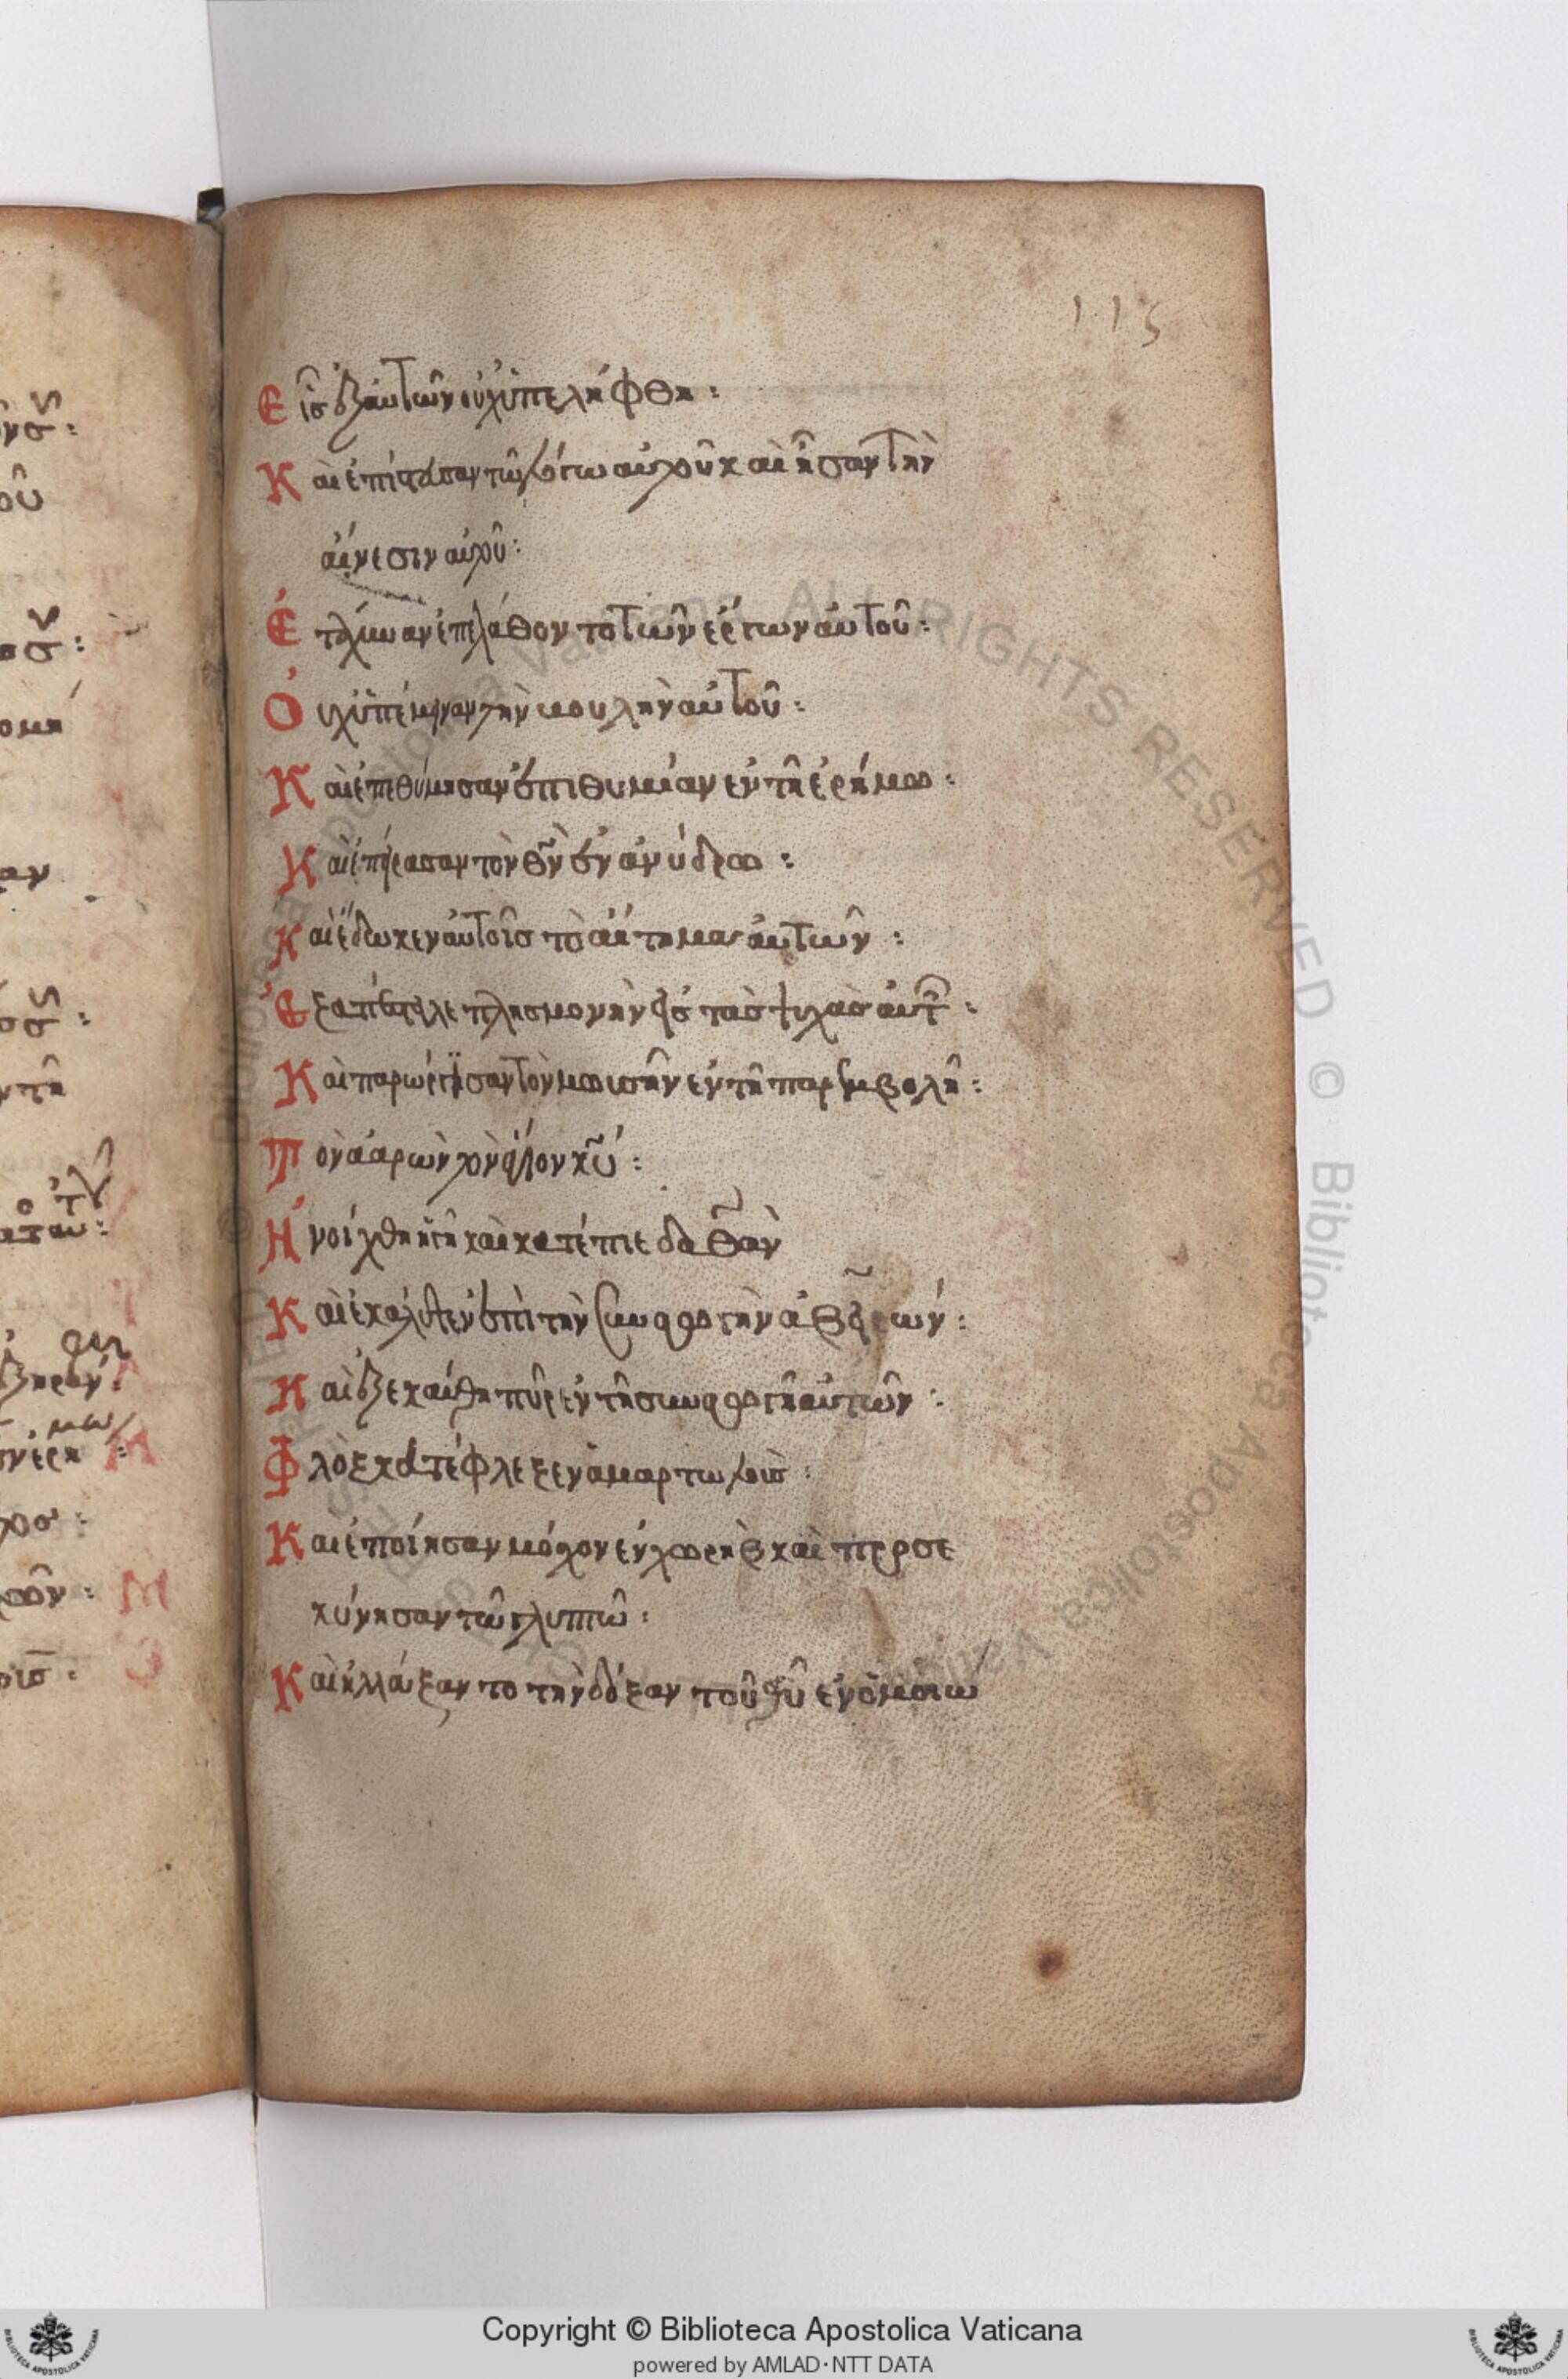 115
Εἷς ἐξ αὐτῶν οὐχ ὑπελήφθη :
Καὶ ἐπίστευσαν τῷ λόγω αὐτοῦ καὶ ᾖσαν τὴν
αἴνεσιν αὐτοῦ :
Ἐτάχυναν ἐπελάθοντο τῶν ἔργων αὐτοῦ :
Οὐχ ὑπέμειναν τὴν βουλὴν αὐτοῦ :
Καὶ ἐπεθύμησαν ἐπιθυμίαν ἐν τῇ ἐρήμω :
Καὶ ἐπείρασαν τὸν θν ἐν ἀνύδρω :
Καὶ ἔδωκεν αὐτοῖς τὸ αἴτημα αὐτῶν :
Ἐξαπέστειλε πλησμονὴν εἰς τὰς ψυχὰς αὐτ :
Καὶ παρώργισαν τὸν μωισῆν ἐν τῇ παρεμβολῇ :
Τὸν ἀαρὼν τὸν ἅγιον κυ :
Ἠνοίχθη ἡ γῆ καὶ κατέπιε δαθὰν
Καὶ ἐκάλυψεν ἐπὶ τὴν συναγωγὴν ἀβειρών :
Καὶ ἐξεκαύθη πῦρ ἐν τῇ συναγωγῇ αὐτῶν :
Φλὸξ κατέφλεξεν ἁμαρτωλούς :
Καὶ ἐποίησαν μόσχον ἐν χωρὴβ καὶ προσε
κύνησαν τῷ γλυπτῷ :
Καὶ ἠλλάξαντο τὴν δόξαν τοῦ θυ ἐν ὁμοιώ
Copyright © Biblioteca Apostolica Vaticana
powered by AMLAD·NTT DATA